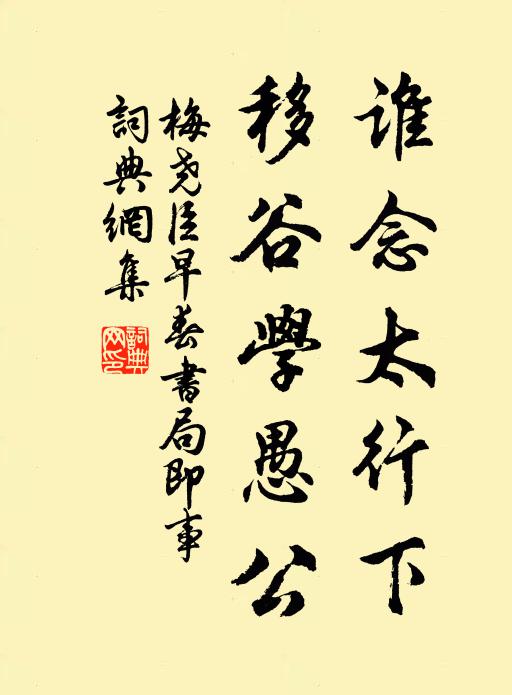 谁念太行下
移谷学愚公
梅尧臣早春书局即事
詞典網集
詞典網印